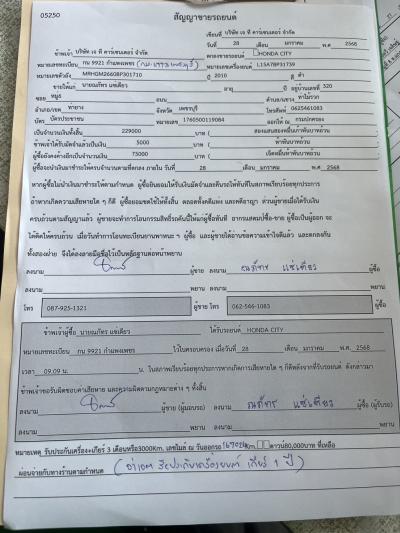 05250
สัญญาขายรถยนต์
เขียนที่ บริษัท เจ ที คาร์เซนเตอร์ จำกัด
วันที่ 28 เดือน มกราคม พ.ศ 2568
ข้าพเจ้า บริษัท เจ ที คาร์เซนเตอร์ จำกัด HONDA CITY
หมายเลขทะเบียน กน 9921 กำแพงเพชร หมายเลขเครื่องยนต์ L15A7BP31739
หมายเลขตัวถัง MRHGM2660BP301710 ปี 2010 สี ดำ
ขายให้แก่ นายณภัทร แซ่เตียว อายุ ปี อยู่บ้านเลขที่ 320
ซอย หมู่6 ถนน ตำบล/แขวง ท่าไม้รวก
อำเภอ/เขต ท่ายาง จังหวัด เพชรบุรี โทรศัพท์ 0625461083
บัตร บัตรประชาชน หมายเลข 1760500119084 ออกให้ ณ กรมปกครอง
เป็นจำนวนเงินทั้งสิ้น 229000 บาท ( สองแสนสองหมื่นเก้าพันบาทถ้วน
ข้าพเจ้าได้รับมัดจำแล้วเป็นเงิน 5000 บาท ( ห้าพันบาทถ้วน
ผู้ซื้อยังคงค้างอีกเป็นจำนวนเงิน 75000 บาท ( เจ็ดหมื่นห้าพันบาทถ้วน
ผู้ซื้อจะนำเงินมาชำระให้ครบจำนวนตามที่ตกลง ภายใน วันที่ 28 เดือน มกราคม พ.ศ 2568
หากผู้ซื้อไม่นำเงินมาชำระให้ตามกำหนด ผู้ซื้อยินยอมให้ริบเงินมัดจำและคืนรถให้ทันทีในสภาพเรียบร้อยทุกประการ
ถ้าหากเกิดความเสียหายใด ๆ ก็ดี ผู้ซื้อยอมชดใช้ให้ทั้งสิ้น ตลอดทั้งคดีแพ่ง และคดีอาญา ส่วนผู้ขายเมื่อได้รับเงิน
ครบถ้วนตามสัญญาแล้ว ผู้ขายจะทำการโอนกรรมสิทธิ์รถคันนี้ให้แก่ผู้ซื้อทันที ผู้ซื้อเป็นผู้ออก จะ
ทั้งสองฝ่าย จึงได้ลงลายมือชื่อไว้เป็นหลักฐานต่อหน้าพยาน
ลงนาม ผู้ขาย ลงนาม ณภัทร แซ่เตียว ผู้ซื้อ
ลงนาม พยาน ลงนาม พยาน
โทร 087-925-1321 ผู้ขาย โทร 062-546-1083 ผู้ซื้อ
ข้าพเจ้าผู้ซื้อ นายณภัทร แซ่เตียว ได้รับรถยนต์ HONDA CITY
หมายเลขทะเบียน กน 9921 กำแพงเพชร ไว้ในครอบครอง เมื่อวันที่ 28 เดือน มกราคม พ.ศ. 2568
เวลา 09.09 น. ในสภาพเรียบร้อยทุกประการหากเกิดการเสียหายใด ๆ ก็ดีหลังจากที่รับรถยนต์ ดังกล่าวมา
ข้าพเจ้าขอรับผิดชอบค่าเสียหาย และความผิดตามกฎหมายต่าง ๆ ทั้งสิ้น
ลงนาม ผู้ขาย (ผู้มอบรถ) ลงนาม ณภัทร แซ่เตียว ผู้ซื้อ (ผู้รับรถ)
ลงนาม พยาน ลงนาม พยาน
หมายเหตุ รับประกันเครื่อง+เกียร์ 3 เดือนหรือ3000Km. เลขไมล์ ณ วันออกรถ Km ดาวน์80,000บาท ที่เหลือ
ผ่อนจ่ายกับทางร้านตามกำหนด